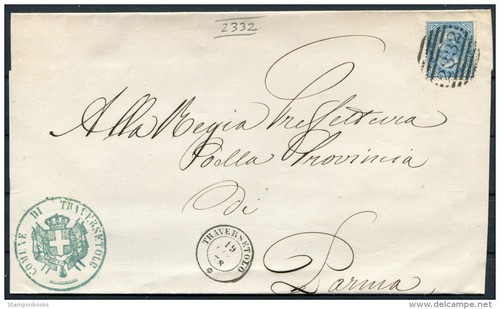 2332
2332
Alla Regia Prefettura
Della Provincia
di
Parma
COMUNE DI TRAVERSETOLO
TRAVERSETOLO
19
78
Stampenbooks
delcampe.net